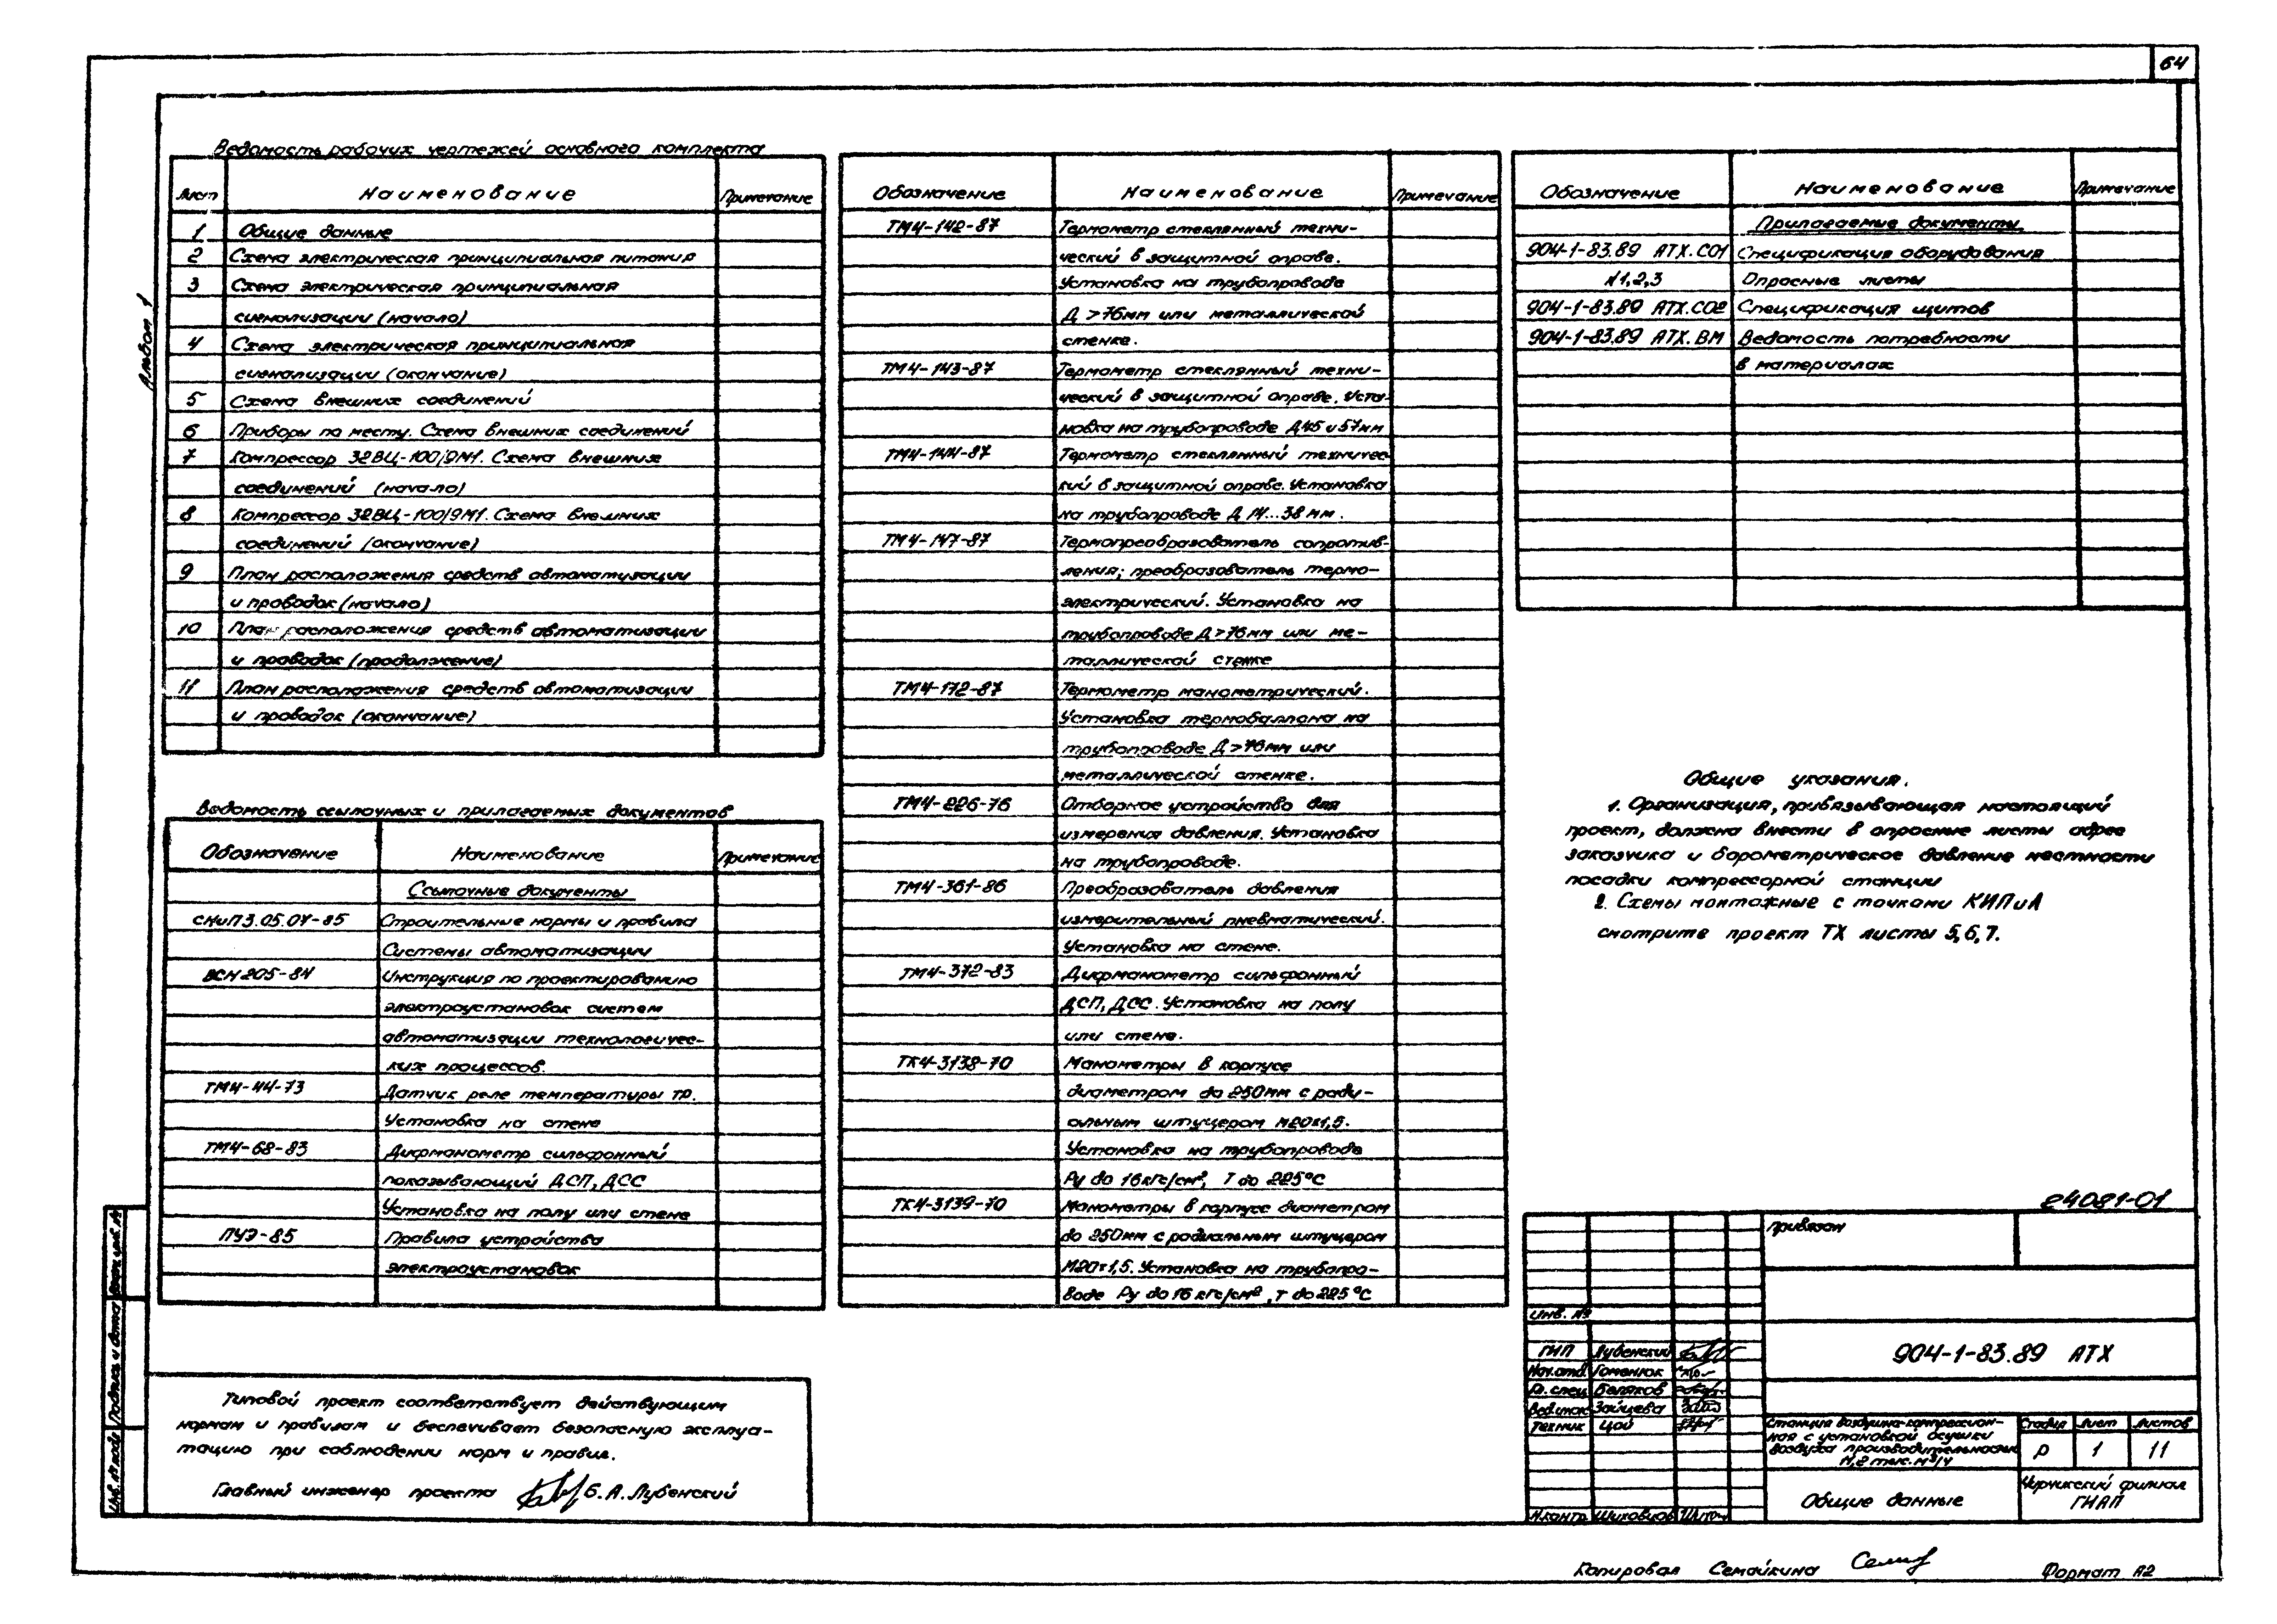 64
Альбом 1
Ведомость рабочих чертежей основного комплекта
Лист Наименование Примечание
1 Общие данные
2 Схема электрическая принципиальная питания
3 Схема электрическая принципиальная
сигнализации (начало)
4 Схема электрическая принципиальная
сигнализации (окончание)
5 Схема внешних соединений
6 Приборы по месту. Схема внешних соединений
7 Компрессор 32ВЦ-100/9М1. Схема внешних
соединений (начало)
8 Компрессор 32ВЦ-100/9М1. Схема внешних
соединений (окончание)
9 План расположения средств автоматизации
и проводок (начало)
10 План расположения средств автоматизации
и проводок (продолжение)
11 План расположения средств автоматизации
и проводок (окончание)
Ведомость ссылочных и прилагаемых документов
Обозначение Наименование Примечание
Ссылочные документы
СНиП 3.05.07-85 Строительные нормы и правила
Системы автоматизации
ВСН 205-84 Инструкция по проектированию
электроустановок систем
автоматизации технологичес-
ких процессов.
ТМ4-44-73 Датчик реле температуры ТР.
Установка на стене
ТМ4-68-83 Дифманометр сильфонный
показывающий ДСП, ДСС
Установка на полу или стене
ПУЭ-85 Правила устройства
электроустановок
Типовой проект соответствует действующим
нормам и правилам и беспечивает безопасную эксплуа-
тацию при соблюдении норм и правил.
Главный инженер проекта Б.А. Лубенский
Обозначение Наименование Примечание
ТМ4-142-87 Термометр стеклянный техни-
ческий в защитной оправе.
Установка на трубопроводе
Д >76мм или металлической
стенке.
ТМ4-143-87 Термометр стеклянный техни-
ческий в защитной оправе. Уста-
новка на трубопроводе Д45 и 57мм
ТМ4-144-87 Термометр стеклянный техничес
кий в защитной оправе. Установка
на трубопроводе Д 14...38 мм.
ТМ4-147-87 Термопреобразователь сопротив-
ления; преобразователь термо-
электрический. Установка на
трубопроводе Д >76мм или ме-
таллической стенке
ТМ4-172-87 Термометр манометрический.
Установка термобаллона на
трубопроводе Д >76мм или
металлической стенке.
ТМ4-226-76 Отборное устройство для
измерения давления. Установка
на трубопроводе.
ТМ4-361-86 Преобразователь давления
измерительный пневматический.
Установка на стене.
ТМ4-372-83 Дифманометр сильфонный
ДСП, ДСС. Установка на полу
или стене.
ТК4-3138-70 Манометры в корпусе
диаметром до 250мм с ради-
альным штуцером М20х1,5.
Установка на трубопроводе
Ру до 16кгс/см², Т до 225°С
ТК4-3139-70 Манометры в корпусе диаметром
до 250мм с радиальным штуцером
М20х1,5. Установка на трубопро-
воде Ру до 16 кгс/см², Т до 225°С
Обозначение Наименование Примечание
Прилагаемые документы.
904-1-83.89 АТХ.СО1 Спецификация оборудования
N1,2,3 Опросные листы
904-1-83.89 АТХ.СО2 Спецификация щитов
904-1-83.89 АТХ.ВМ Ведомость потребности
в материалах
Общие указания.
1. Организация, привязывающая настоящий
проект, должна внести в опросные листы адрес
заказчика и барометрическое давление местности
посадки компрессорной станции
2. Схемы монтажные с точками КИПиА
смотрите проект ТХ листы 5,6,7.
24081-01
Привязан
Инв. №
ГИП Лубенский
Нач.отд. Гоменюк
Гл. спец Беляков
Вед.инж Зайцева
Техник Цой
Н.контр. Шиховцов
904-1-83.89 АТХ
Станция воздушно-компрессион-
ная с установкой осушки
воздуха производительностью
11,2 тыс. м³/ч
Стадия Лист Листов
Р 1 11
Общие данные
Чирчикский филиал
ГИАП
Инв. № подл. Подпись и дата Взам. инв. №
Копировал Семайкина
Формат А2